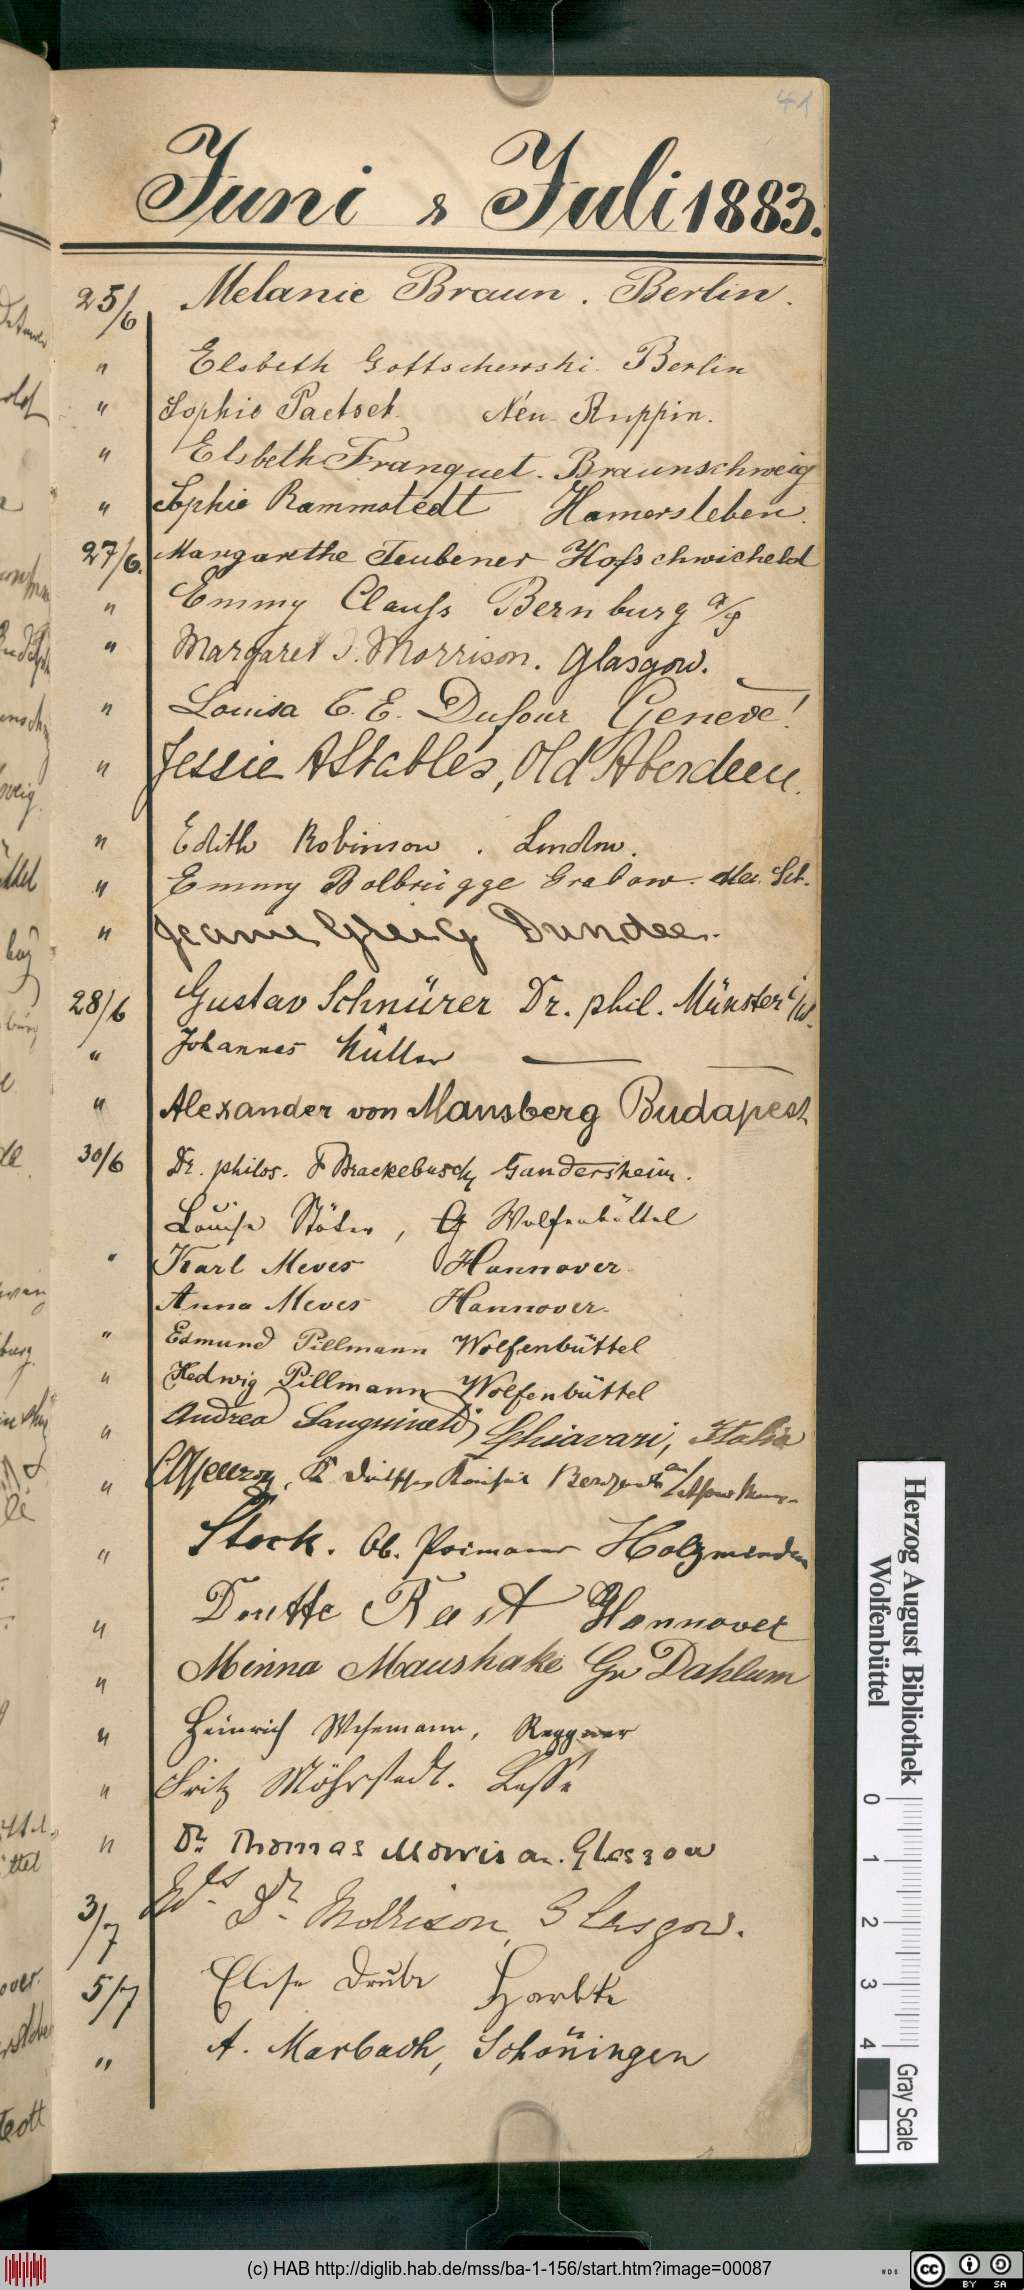 41
Juni & Juli 1883.
25/6 Melanie Braun. Berlin.
" Elsbeth Gottschewski. Berlin
" Sophie Paetsch. Neu-Ruppin.
" Elsbeth Franquet. Braunschweig
" Sophie Rammstedt Hamersleben.
27/6. Margarethe Teubener Hofschwicheldt
" Emmy Clauss Bernburg a/S
" Margaret J. Morrison. Glasgow.
" Louisa C. E. Dufour Genève!
" Jessie A Stables, Old Aberdeen.
" Edith Robinson. London.
" Emmy Bolbrügge Grabow. Mec. Sch.
" Jeanie Greig Dundee.
28/6 Gustav Schnürer Dr. phil. Münster i/W.
" Johannes Müller —— ——
" Alexander von Mansberg Budapest
30/6 Dr. philos. F Brackebusch, Gandersheim.
Louise Stöter, Wolfenbüttel
" Karl Meves Hannover
Anna Meves Hannover.
" Edmund Pillmann Wolfenbüttel
" Hedwig Pillmann Wolfenbüttel
" Andrea Sanguineti, Chiavari, Italia
"
" Stock. Ob. Primaner Holzminden
" Dorette Rast Hannover
" Minna Maushake Gr Dahlum
" Heinrich Wesemann,
" Fritz Möhrstedt. Lesse
" Dr Thomas Morrison. Glasgow
3/7 Dr. Morrison, Glasgow.
5/7 Elise Drube Harbke
" A. Marbach, Schöningen
Herzog August Bibliothek
Wolfenbüttel
0 1 2 3 4
Gray Scale
(c) HAB http://diglib.hab.de/mss/ba-1-156/start.htm?image=00087
WDB
cc BY SA